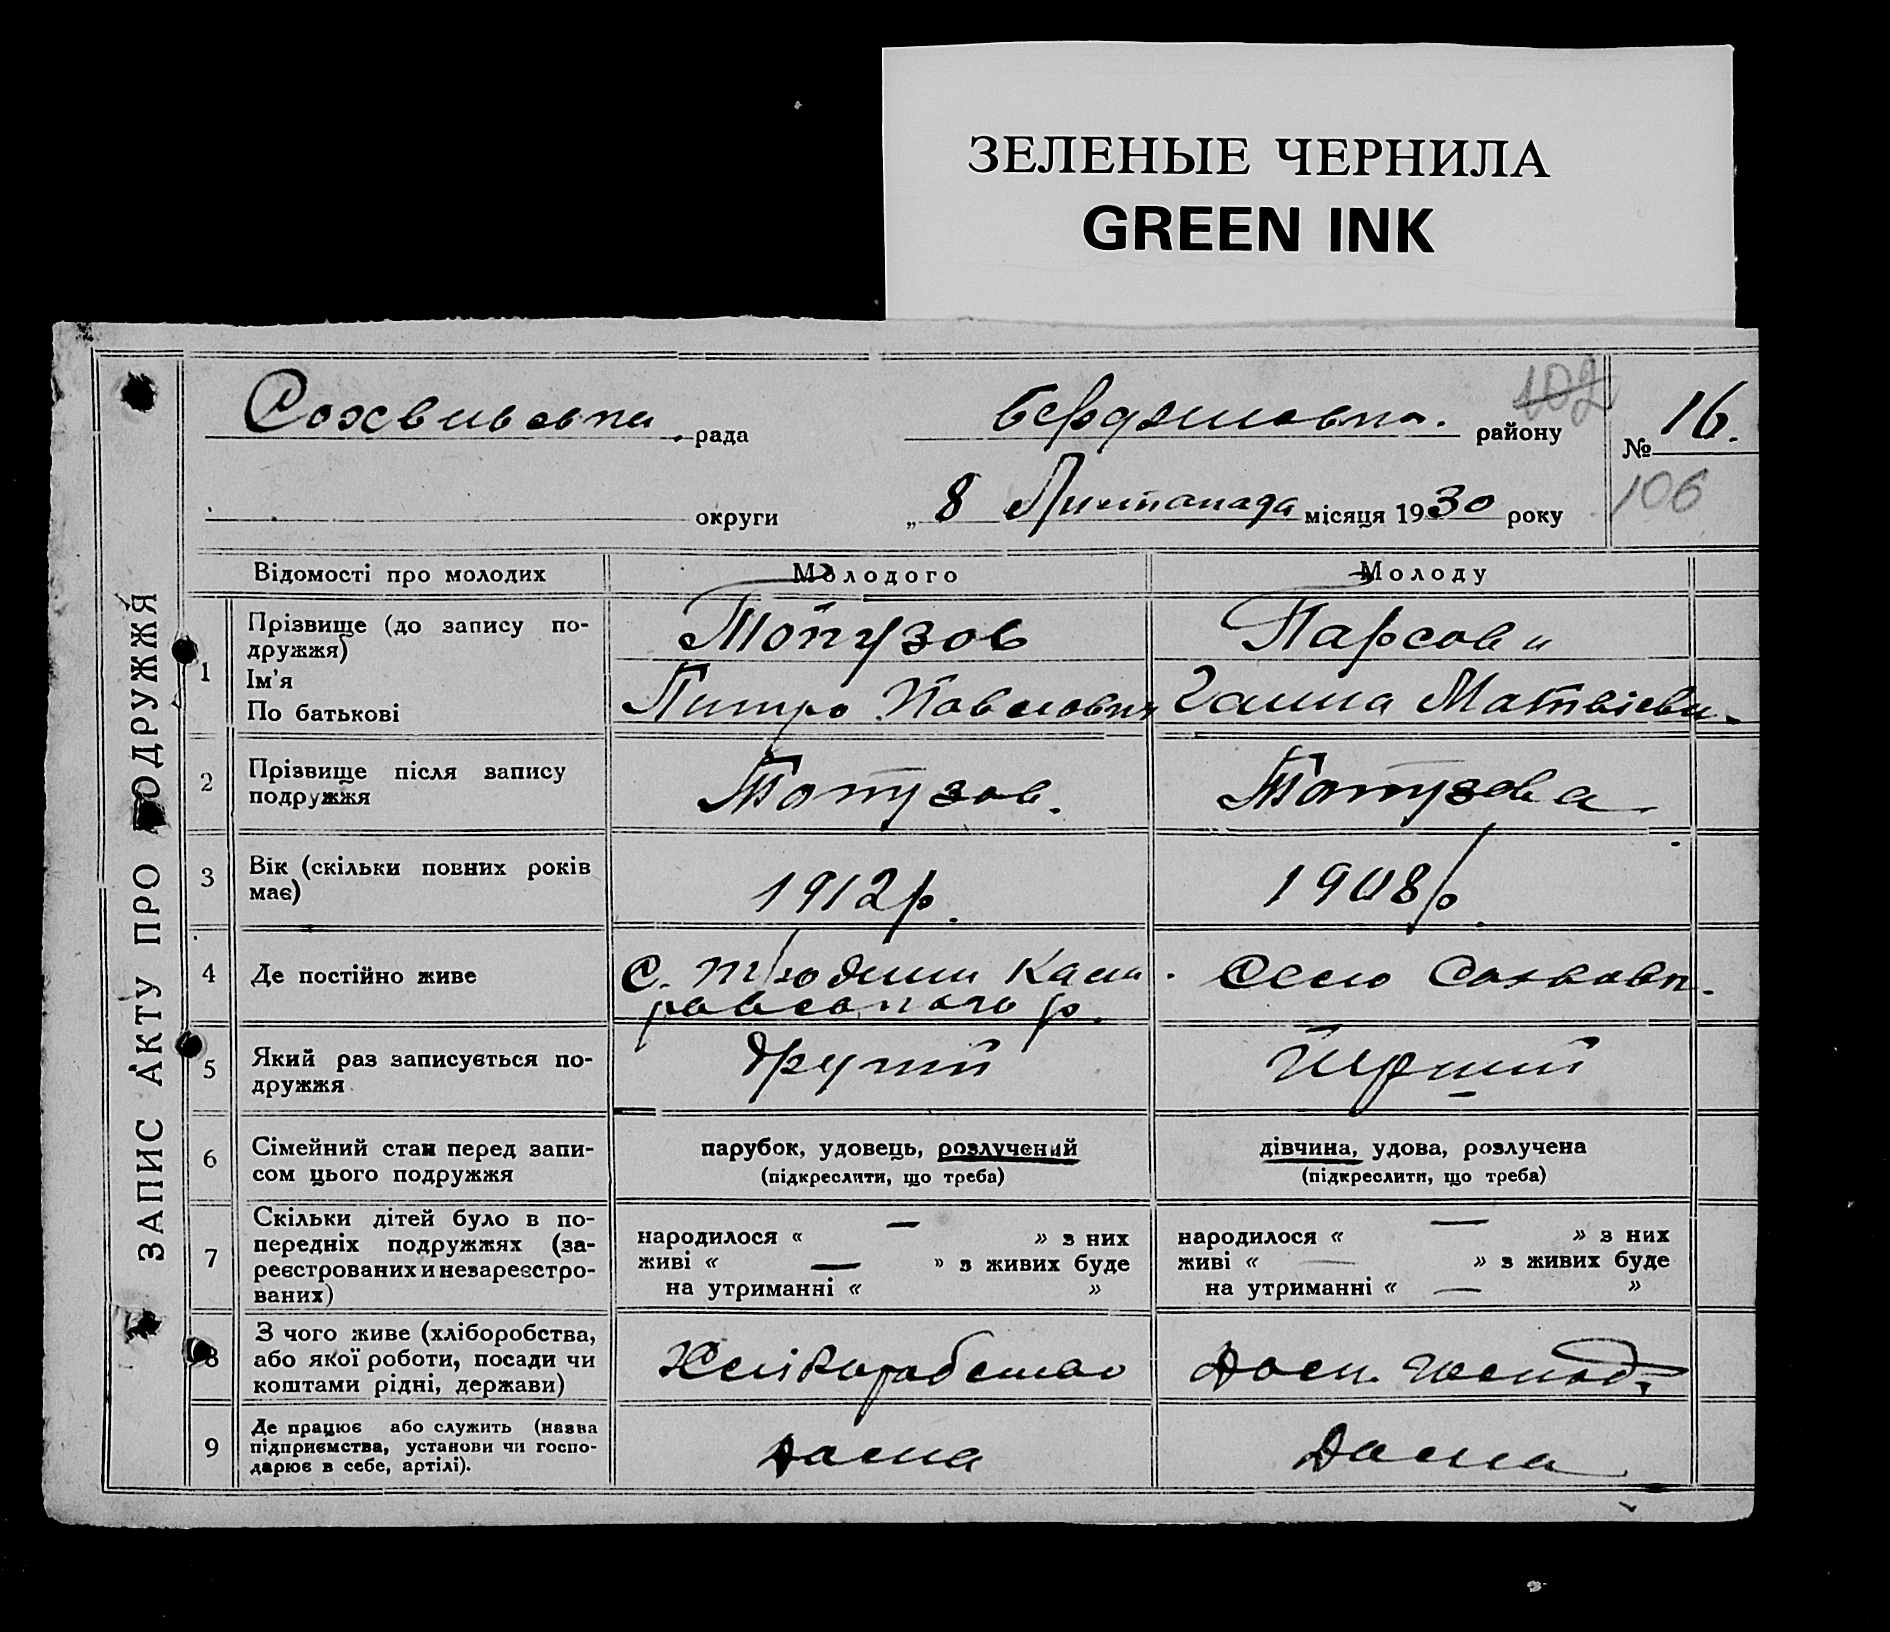 ЗЕЛЕНЫЕ ЧЕРНИЛА
GREEN INK
ЗАПИС АКТУ ПРО ПОДРУЖЖЯ
рада
району
102
№ 16.
106
округи
„ 8 Листопада місяця 1930 року
Відомості про молодих
Молодого
Молоду
1
Прізвище (до запису по-
дружжя)
Ім'я
По батькові
Топузов
Петро Павлович
Ганна Матвієвн.
2
Прізвище після запису
подружжя
Топузов.
Топузова
3
Вік (скільки повних років
має)
1912 р.
1908 р.
4
Де постійно живе
С.
р.
Село
5
Який раз записується по-
дружжя
другий
Перший
6
Сімейний стан перед запи-
сом цього подружжя
парубок, удовець, розлучений
(підкреслити, що треба)
дівчина, удова, розлучена
(підкреслити, що треба)
7
Скільки дітей було в по-
передніх подружжях (за-
реєстрованих и незареєстро-
ваних)
народилося « — » з них
живі « — » з живих буде
на утриманні « »
народилося « — » з них
живі « — » з живих буде
на утриманні « — »
8
З чого живе (хліборобства,
або якої роботи, посади чи
коштами рідні, держави)
Хліборобство
Дом. господ.
9
Де працює або служить (назва
підприємства, установи чи госпо-
дарює в себе, артілі).
Дома
Дома